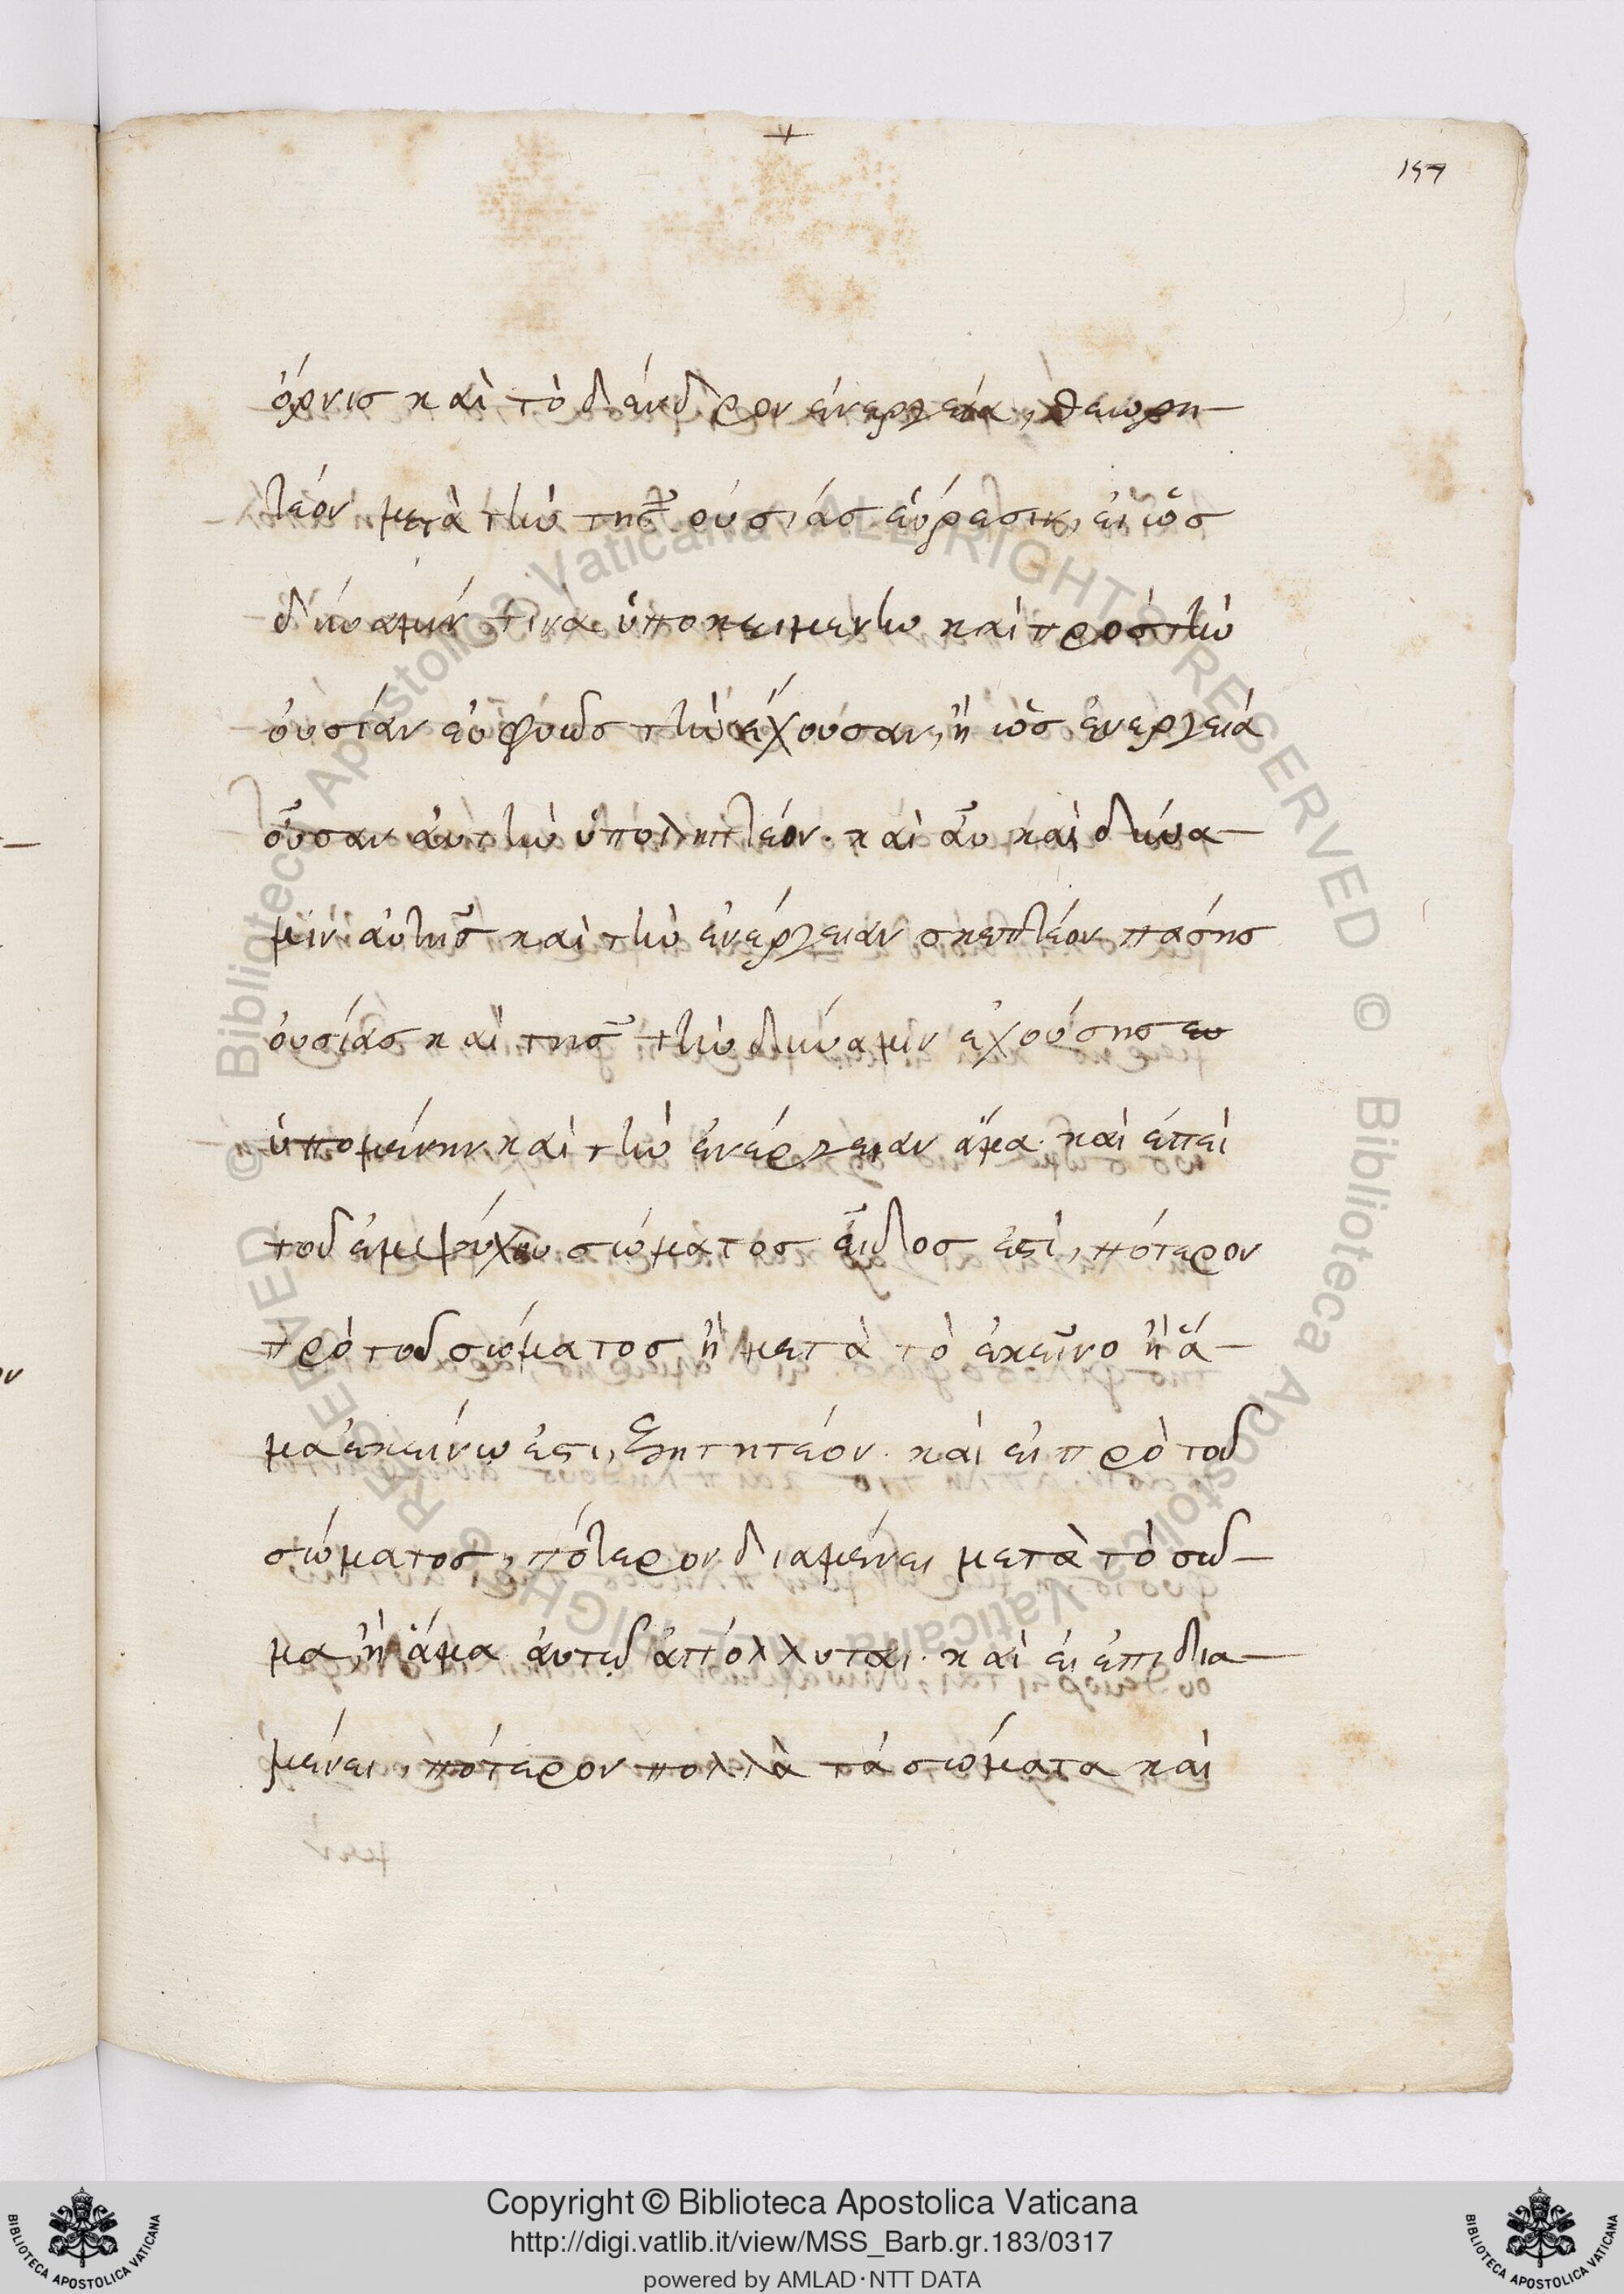 157
ὄρνις καὶ τὸ δένδρον ἐνεργεία, θεωρη—
τέον μετὰ τὴν τῆς οὐσίας εὕρεσιν, εἰ ὡς
δύναμίν τινα ὑποκειμένην καὶ πρὸς τὴν
οὐσίαν εὐφυῶς τὴν ἔχουσαν, ἢ ὡς ἐνεργεία
οὖσαν αὐτὴν ὑποληπτέον. καὶ αὖ καὶ δύνα—
μιν αὐτῆς καὶ τὴν ἐνέργειαν σκεπτέον πάσης
οὐσίας καὶ τῆς τὴν δύναμιν ἐχούσης
ὑπομένην καὶ τὴν ἐνέργειαν ἅμα. καὶ ἐπεὶ
τοῦ ἐμψύχου σώματος εἶδος ἐστὶ, πότερον
πρὸ τοῦ σώματος ἢ μετὰ τὸ ἐκεῖνο ἢ ἅ—
μα ἐκείνῳ ἐστι, ζητητέον. καὶ εἰ πρὸ τοῦ
σώματος, πότερον διαμένει μετὰ τὸ σῶ—
μα, ἢ ἅμα αὐτῷ ἀπόλλυται. καὶ εἰ ἐπιδια—
μένει, πότερον πολλὰ τὰ σώματα καὶ
Copyright © Biblioteca Apostolica Vaticana
http://digi.vatlib.it/view/MSS_Barb.gr.183/0317
powered by AMLAD·NTT DATA
BIBLIOTECA APOSTOLICA VATICANA
BIBLIOTECA APOSTOLICA VATICANA
© Biblioteca Apostolica Vaticana ALL RIGHTS RESERVED © Biblioteca Apostolica Vaticana ALL RIGHTS RESERVED